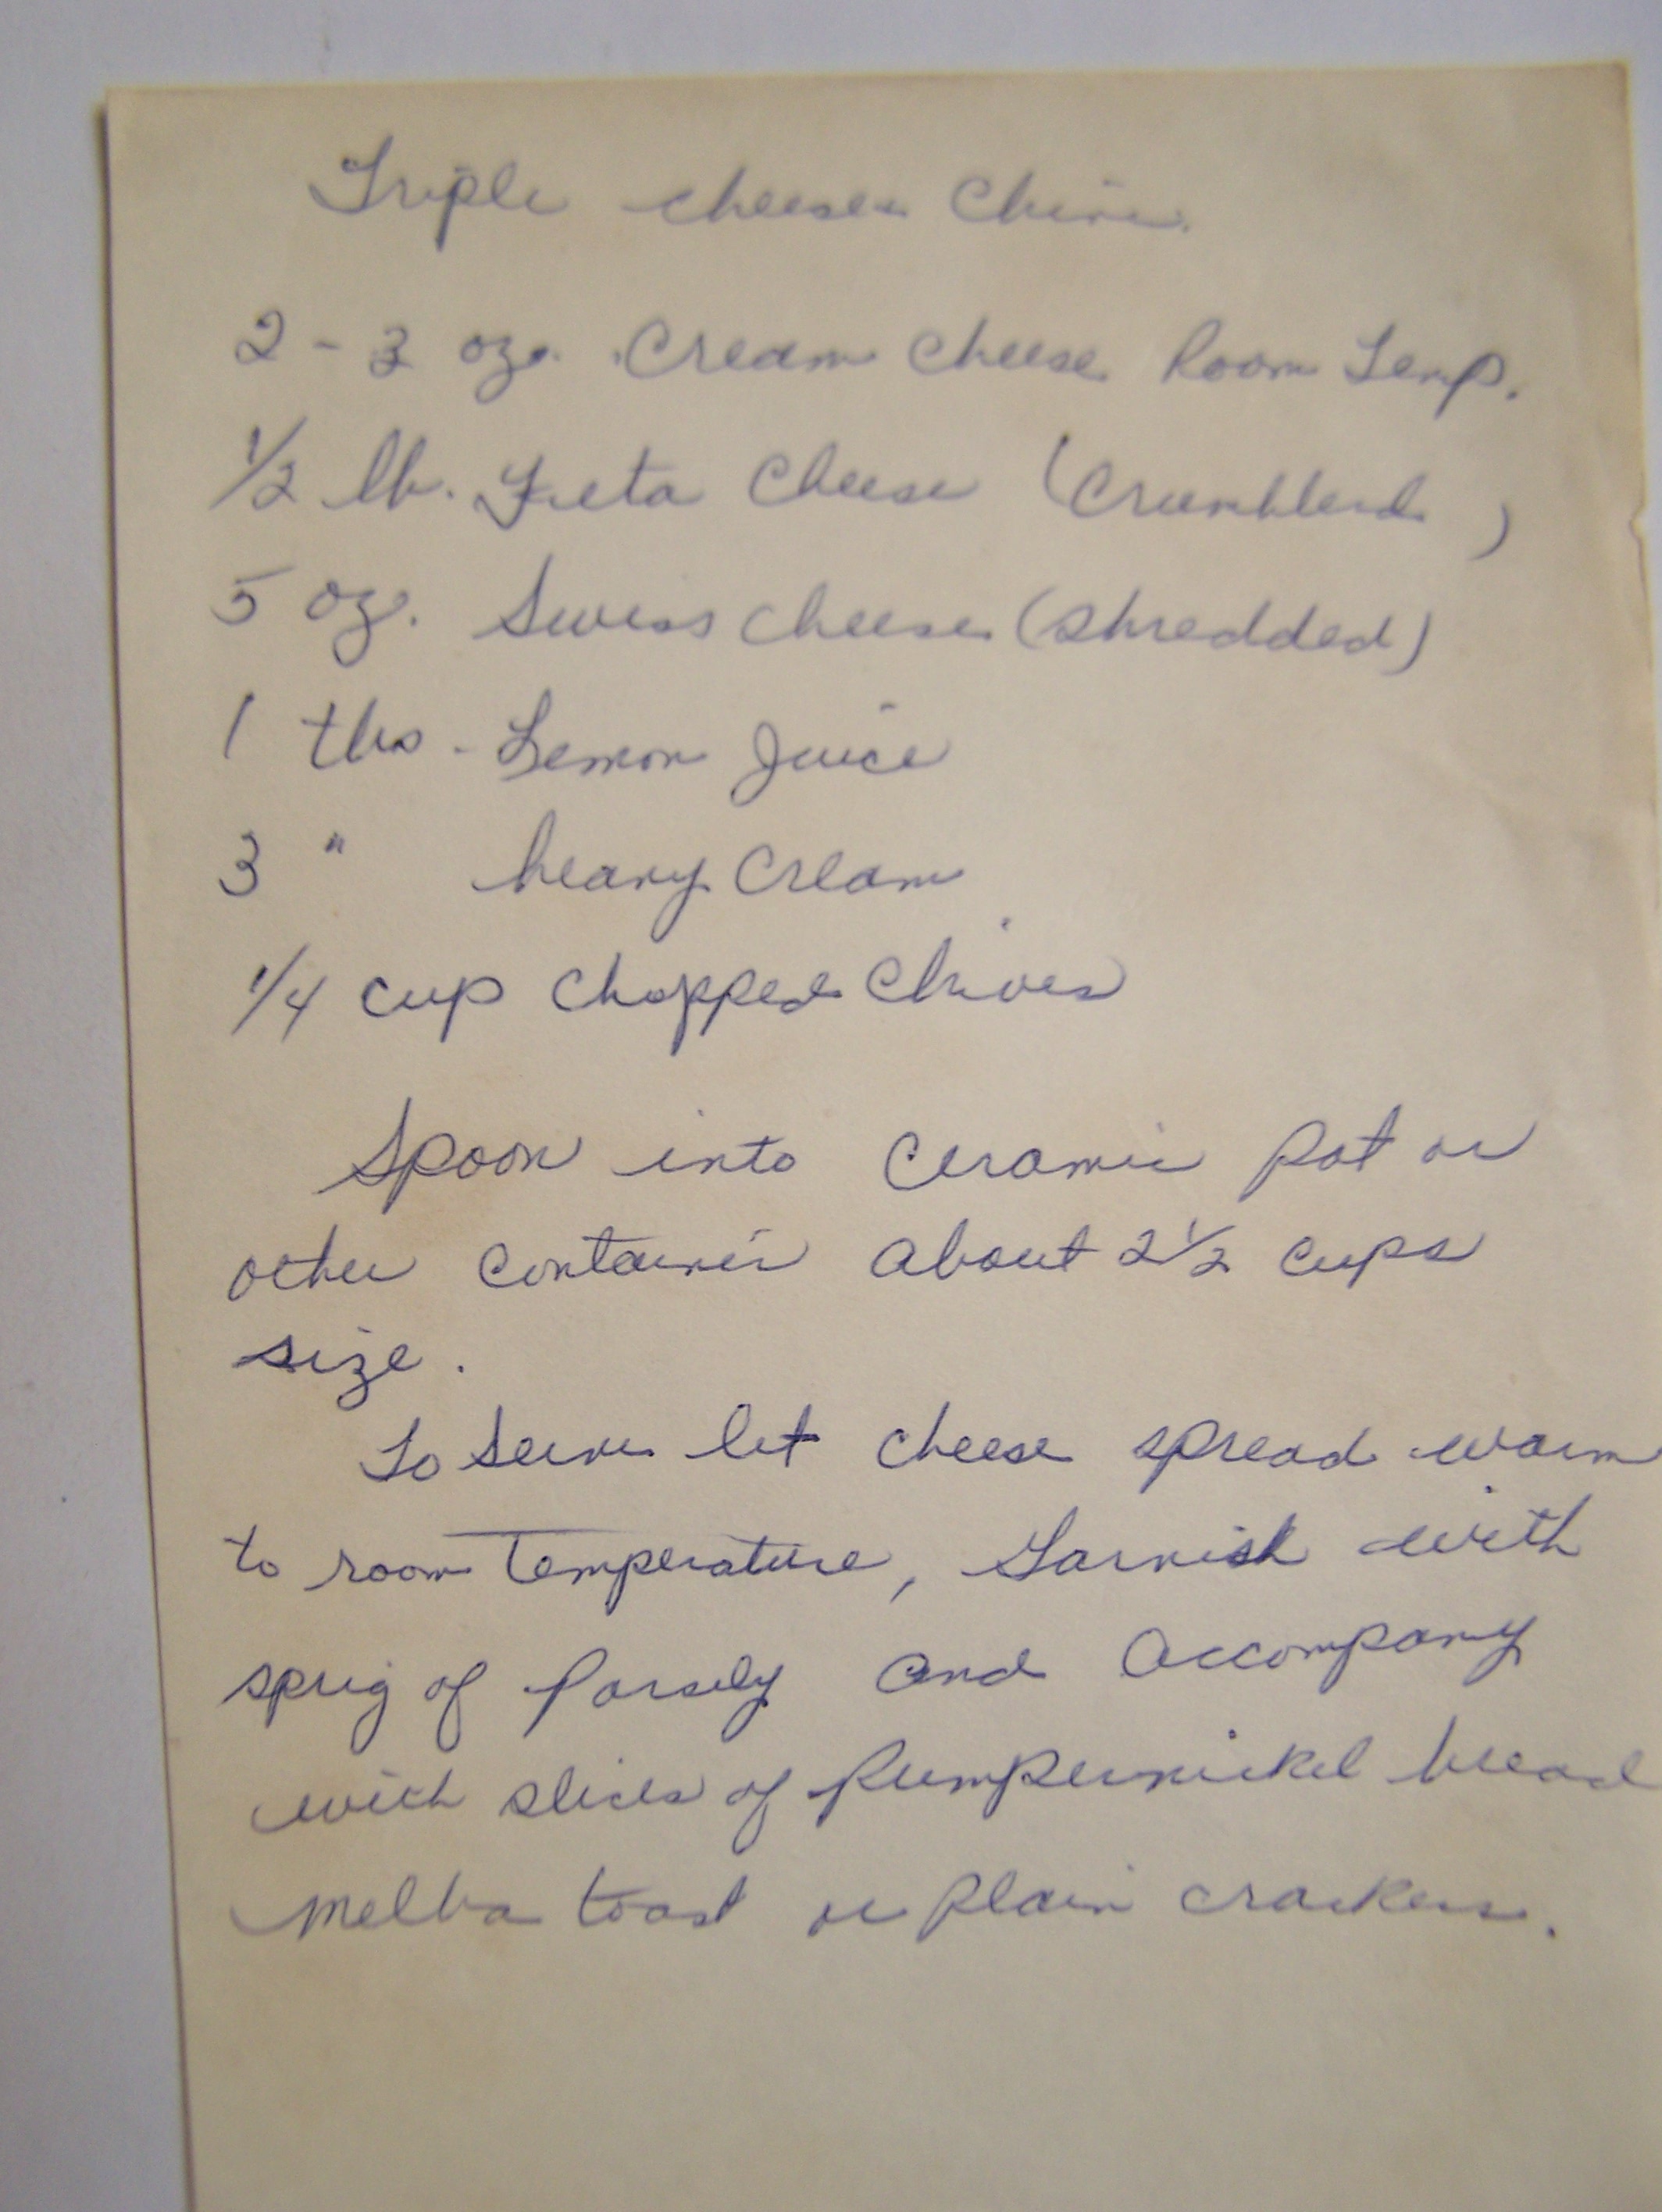 Triple cheese Chive
2 - 3 oz. Cream Cheese Room Temp.
1/2 lb. Feta Cheese (Crumbled)
5 oz. Swiss Cheese (shredded)
1 tbs - Lemon Juice
3 " heavy Cream
1/4 cup chopped Chives
Spoon into Ceramic Pot or
other container about 2 1/2 cups
size.
To Serve let cheese spread warm
to room Temperature, Garnish with
sprig of Parsely and accompany
with slices of Pumpernickel bread
Melba toast or Plain crackers.